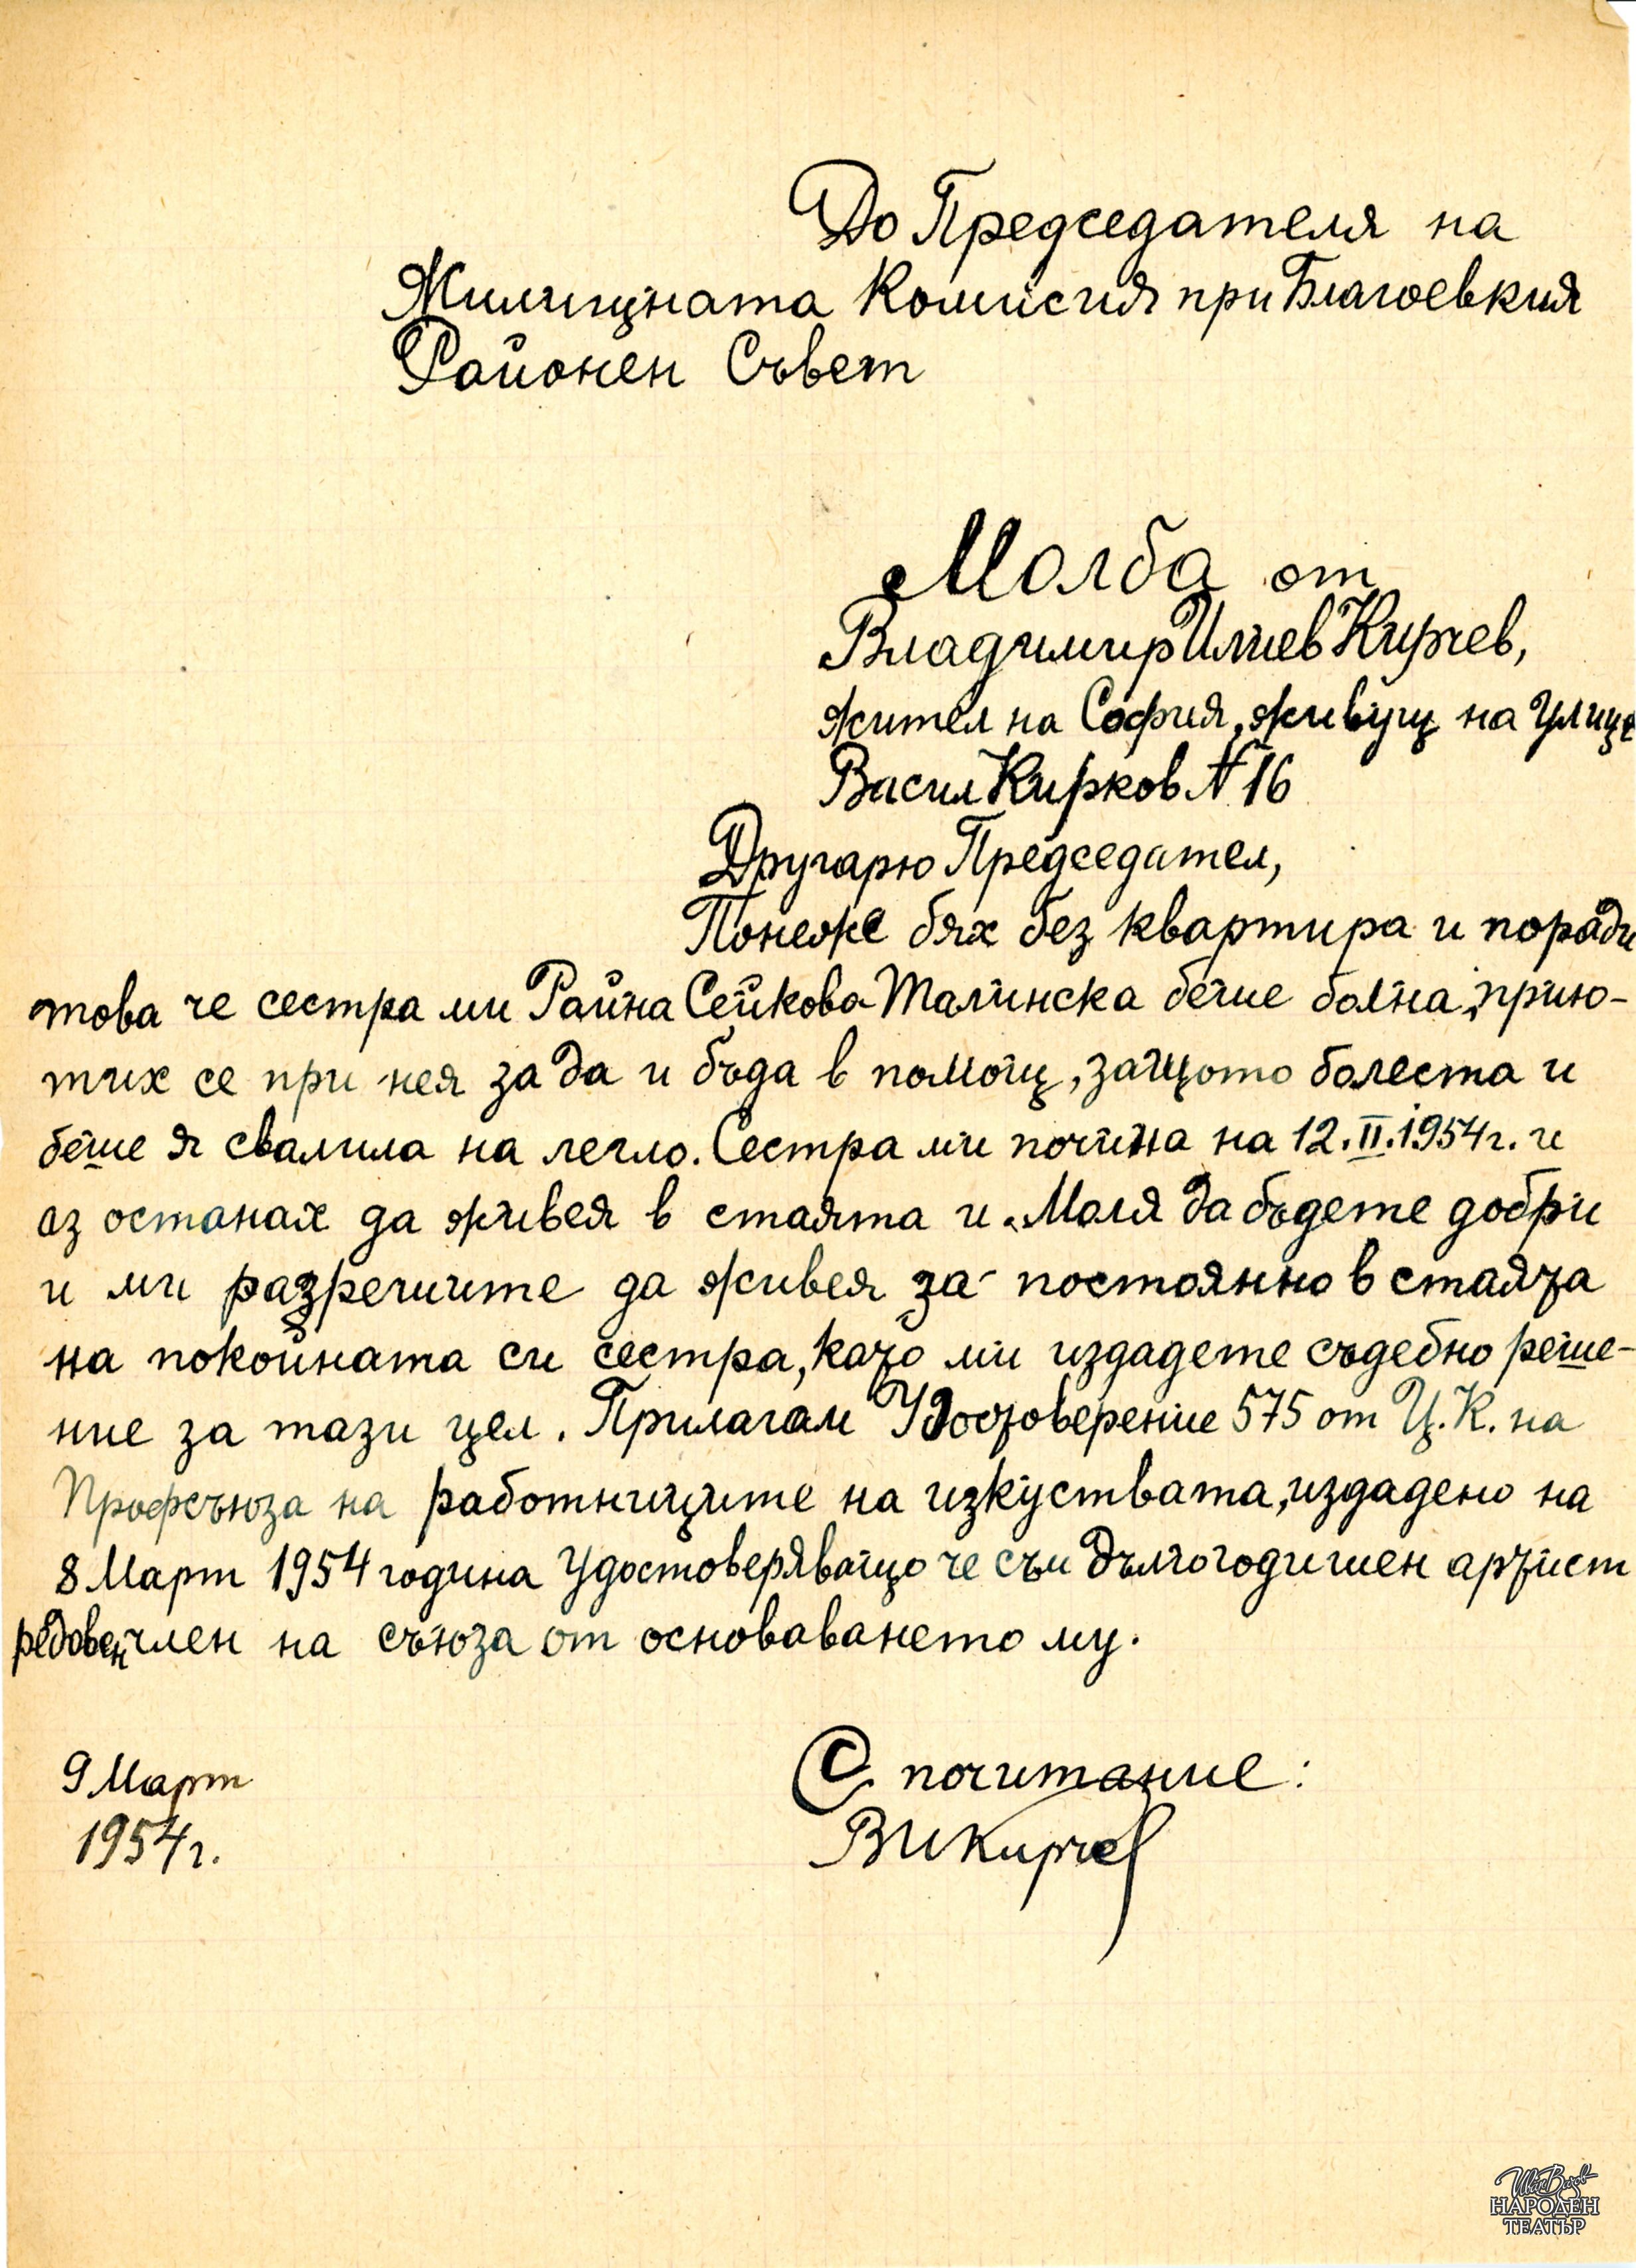 До Председателя на
Жилищната Комисия при Благоевкия
Районен Съвет
Молба от
Владимир Илиев Кирчев,
жител на София, живущ на Улица
Васил Кирков № 16
Другарю Председател,
Понеже бях без квартира и поради
това че сестра ми Райна Сейкова-Талинска беше болна, прию-
тих се при нея за да и бъда в помощ, защото болеста и
беше я свалила на легло. Сестра ми почина на 12.II.1954г. и
аз останах да живея в стаята и. Моля да бъдете добри
и ми разрешите да живея за постоянно в стаята
на покойната си сестра, като ми издадете съдебно реше-
ние за тази цел. Прилагам Удостоверение 575 от Ц.К. на
Профсъюза на работниците на изкуствата, издадено на
8 Март 1954 година Удостоверяващо че съм дългогодишен артист
редовен член на съюза от основаването му.
9 Март
1954г.
С почитание:
В И Кирчев
Ив. Вазов
НАРОДЕН
ТЕАТЪР